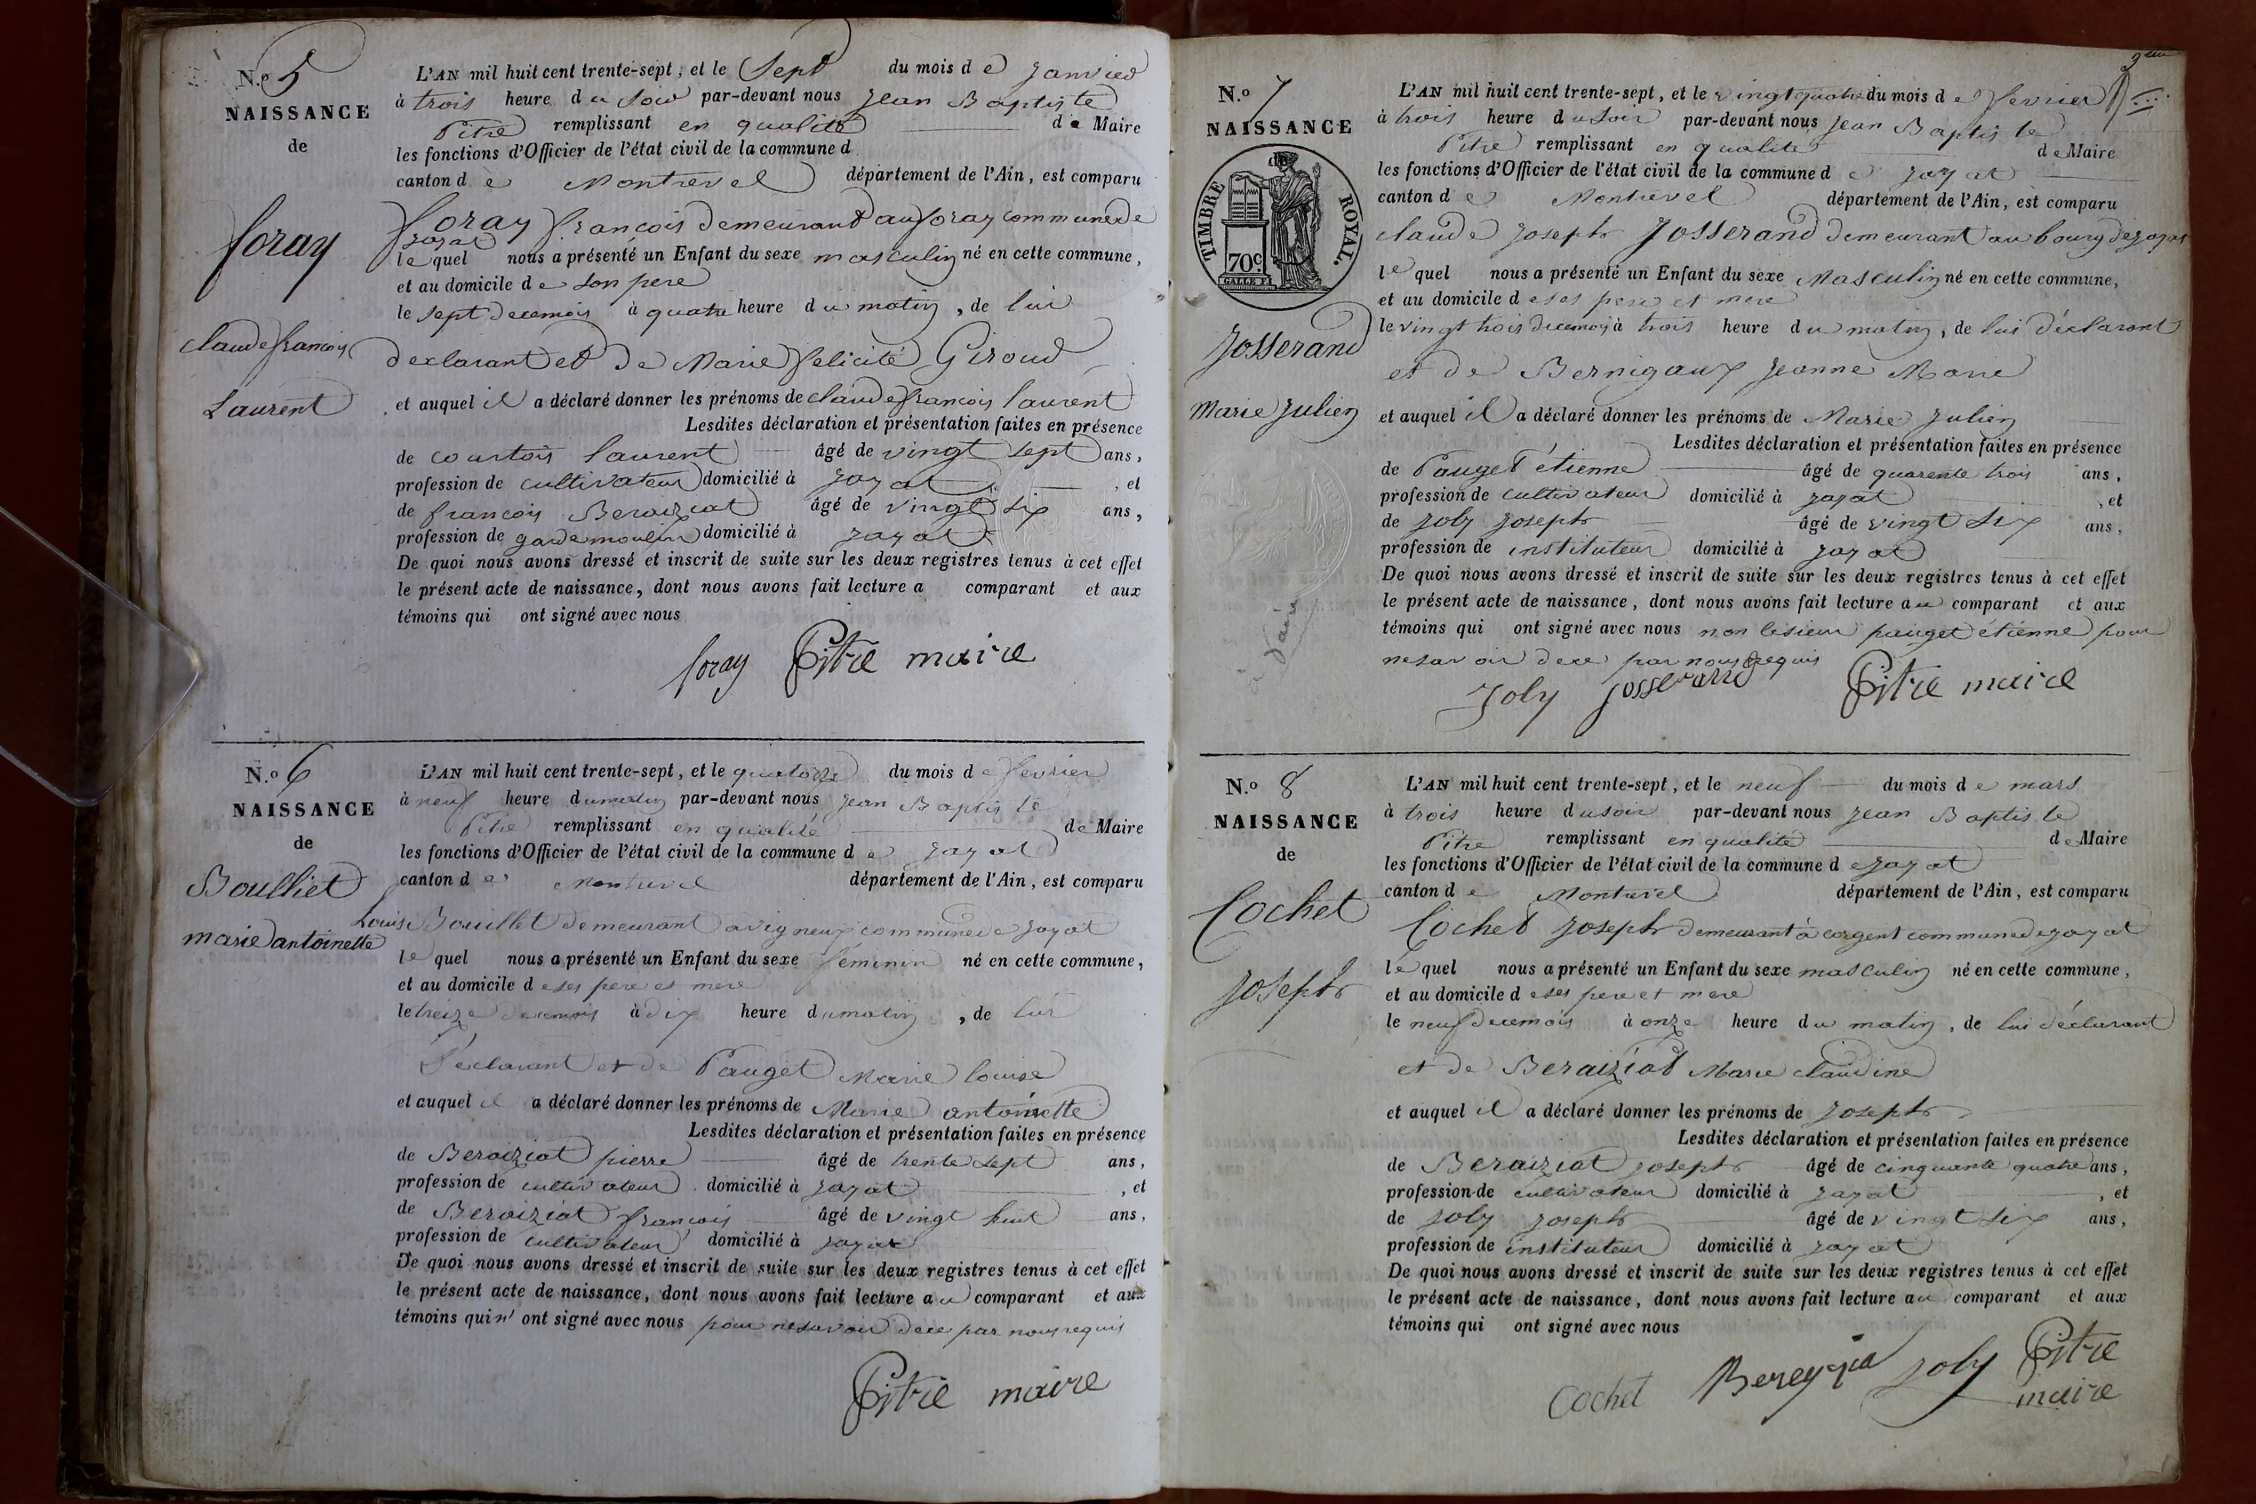 N.o 5
NAISSANCE
de
foray
claude françois
Laurent
L'AN mil huit cent trente-sept, et le sept du mois de janvier
à trois heure du soir par-devant nous jean Baptiste
Pitre remplissant en qualité de Maire
les fonctions d'Officier de l'état civil de la commune d
canton de Montrevel département de l'Ain, est comparu
foray françois demeurant au foray commune de
jayat
lequel nous a présenté un Enfant du sexe masculin né en cette commune,
et au domicile de son pere
le sept du cemois à quatre heure du matin, de lui
declarant et de Marie felicité Giroud
et auquel il a déclaré donner les prénoms de claude françois laurent
Lesdites déclaration et présentation faites en présence
de courtois laurent âgé de vingt sept ans,
profession de cultivateur domicilié à jayat, et
de françois Beraiziat âgé de vingt six ans,
profession de garde moulin domicilié à jayat
De quoi nous avons dressé et inscrit de suite sur les deux registres tenus à cet effet
le présent acte de naissance, dont nous avons fait lecture a comparant et aux
témoins qui ont signé avec nous
foray Pitre maire
N.o 6
NAISSANCE
de
Boulliet
marie antoinette
L'AN mil huit cent trente-sept, et le quatorze du mois de fevrier
à neuf heure du matin par-devant nous jean Baptiste
Pitre remplissant en qualité de Maire
les fonctions d'Officier de l'état civil de la commune de jayat
canton de Montrevel département de l'Ain, est comparu
Louis Bouillet demeurant a vigneux commune de jayat
lequel nous a présenté un Enfant du sexe féminin né en cette commune,
et au domicile de ses pere et mere
le treize du cemois à dix heure du matin, de lui
déclarant et de Pauget Marie louise
et auquel il a déclaré donner les prénoms de Marie antoinette
Lesdites déclaration et présentation faites en présence
de Beraiziat pierre âgé de trente sept ans,
profession de cultivateur domicilié à jayat, et
de Beraiziat françois âgé de vingt huit ans,
profession de cultivateur domicilié à jayat
De quoi nous avons dressé et inscrit de suite sur les deux registres tenus à cet effet
le présent acte de naissance, dont nous avons fait lecture au comparant et aux
témoins qui n'ont signé avec nous pour ne savoir dece par nous requis
Pitre maire
N.o 7
NAISSANCE
de
TIMBRE ROYAL.
70c.
Josserand
Marie Julien
L'AN mil huit cent trente-sept, et le vingt quatre du mois de fevrier
à trois heure du soir par-devant nous jean Baptiste
Pitre remplissant en qualité de Maire
les fonctions d'Officier de l'état civil de la commune de jayat
canton de Montrevel département de l'Ain, est comparu
claude joseph Josserand demeurant au bourg de jayat
lequel nous a présenté un Enfant du sexe Masculin né en cette commune,
et au domicile de ses pere et mere
le vingt trois du cemois à trois heure du matin, de lui déclarant
et de Bernigaux jeanne Marie
et auquel il a déclaré donner les prénoms de Marie Julien
Lesdites déclaration et présentation faites en présence
de Pauget étienne âgé de quarente trois ans,
profession de cultivateur domicilié à jayat, et
de joly joseph âgé de vingt six ans,
profession de instituteur domicilié à jayat
De quoi nous avons dressé et inscrit de suite sur les deux registres tenus à cet effet
le présent acte de naissance, dont nous avons fait lecture au comparant et aux
témoins qui ont signé avec nous non lesieur pauget étienne pour
ne savoir dece par nous requis
Joly josserand Pitre maire
N.o 8
NAISSANCE
de
Cochet
joseph
L'AN mil huit cent trente-sept, et le neuf du mois de mars
à trois heure du soir par-devant nous jean Baptiste
Pitre remplissant en qualité de Maire
les fonctions d'Officier de l'état civil de la commune de jayat
canton de Montrevel département de l'Ain, est comparu
Cochet joseph demeurant à corgent commune de jayat
lequel nous a présenté un Enfant du sexe masculin né en cette commune,
et au domicile de ses pere et mere
le neuf du cemois à onze heure du matin, de lui déclarant
et de Beraiziat Marie claudine
et auquel il a déclaré donner les prénoms de joseph
Lesdites déclaration et présentation faites en présence
de Beraiziat joseph âgé de cinquante quatre ans,
profession de cultivateur domicilié à jayat, et
de joly joseph âgé de vingt six ans,
profession de instituteur domicilié à jayat
De quoi nous avons dressé et inscrit de suite sur les deux registres tenus à cet effet
le présent acte de naissance, dont nous avons fait lecture au comparant et aux
témoins qui ont signé avec nous
Cochet Bereyzia joly Pitre
maire